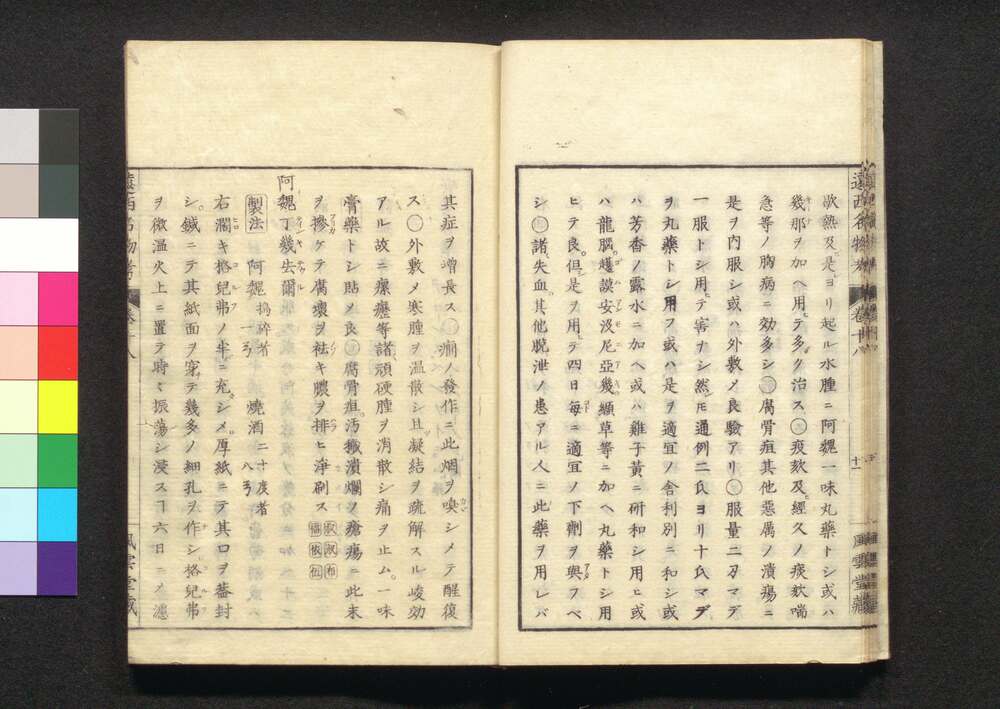 歇熱及是ヨリ起ル水腫ニ阿魏一味丸藥トシ或ハ
幾那ヲ加ヘ用テ多ク治ス〇痰欬及經久ノ痰欬喘
急等ノ胸病ニ効多シ〇腐骨疽其他惡厲ノ潰瘍ニ
是ヲ内服シ或ハ外敷メ良驗アリ〇服量二刃マデ
一服トシ用テ害ナシ然モ通例二氏ヨリ十氏マデ
ヲ丸藥トシ用フ或ハ是ヲ適宜ノ舎利別ニ和シ或
ハ芳香ノ露水ニ加ヘ或ハ雞子黄ニ研和シ用ヒ或
ハ龍腦護謨安没尼亞幾纈草等ニ加ヘ丸藥トシ用
ヒテ良但是ヲ用テ四日毎ニ適宜ノ下劑ヲ與フベ
シ〇諸失血其他脱泄ノ患アル人ニ此藥ヲ用レバ
遠西名物考 卷十八 十一 風雲堂藏
其症ヲ增長ス〇癇ノ發作ニ此烟ヲ嗅シメテ醒復
ス〇外敷メ寒腫ヲ温散シ且凝結ヲ疏解スル峻効
アル故ニ瘰癧等諸頑硬腫ヲ消散シ痛ヲ止ム一味
膏藥トシ貼メ良〇腐骨疽汚穢潰爛ノ瘡瘍ニ此末
ヲ摻ケテ腐壞ヲ祛キ膿ヲ排ヒ淨刷ス
阿魏丁幾去爾
製法 阿魏 搗碎者 一弓 燒酒 二十度者 八弓
右濶キ格兒弗ノ半ニ充シメ厚紙ニテ其口ヲ蕃封
シ鍼ニテ其紙面ヲ穿テ幾多ノ細孔ヲ作シ格兒弗
ヲ微温火上ニ置テ時々振蕩シ浸スヿ六日ニメ濾